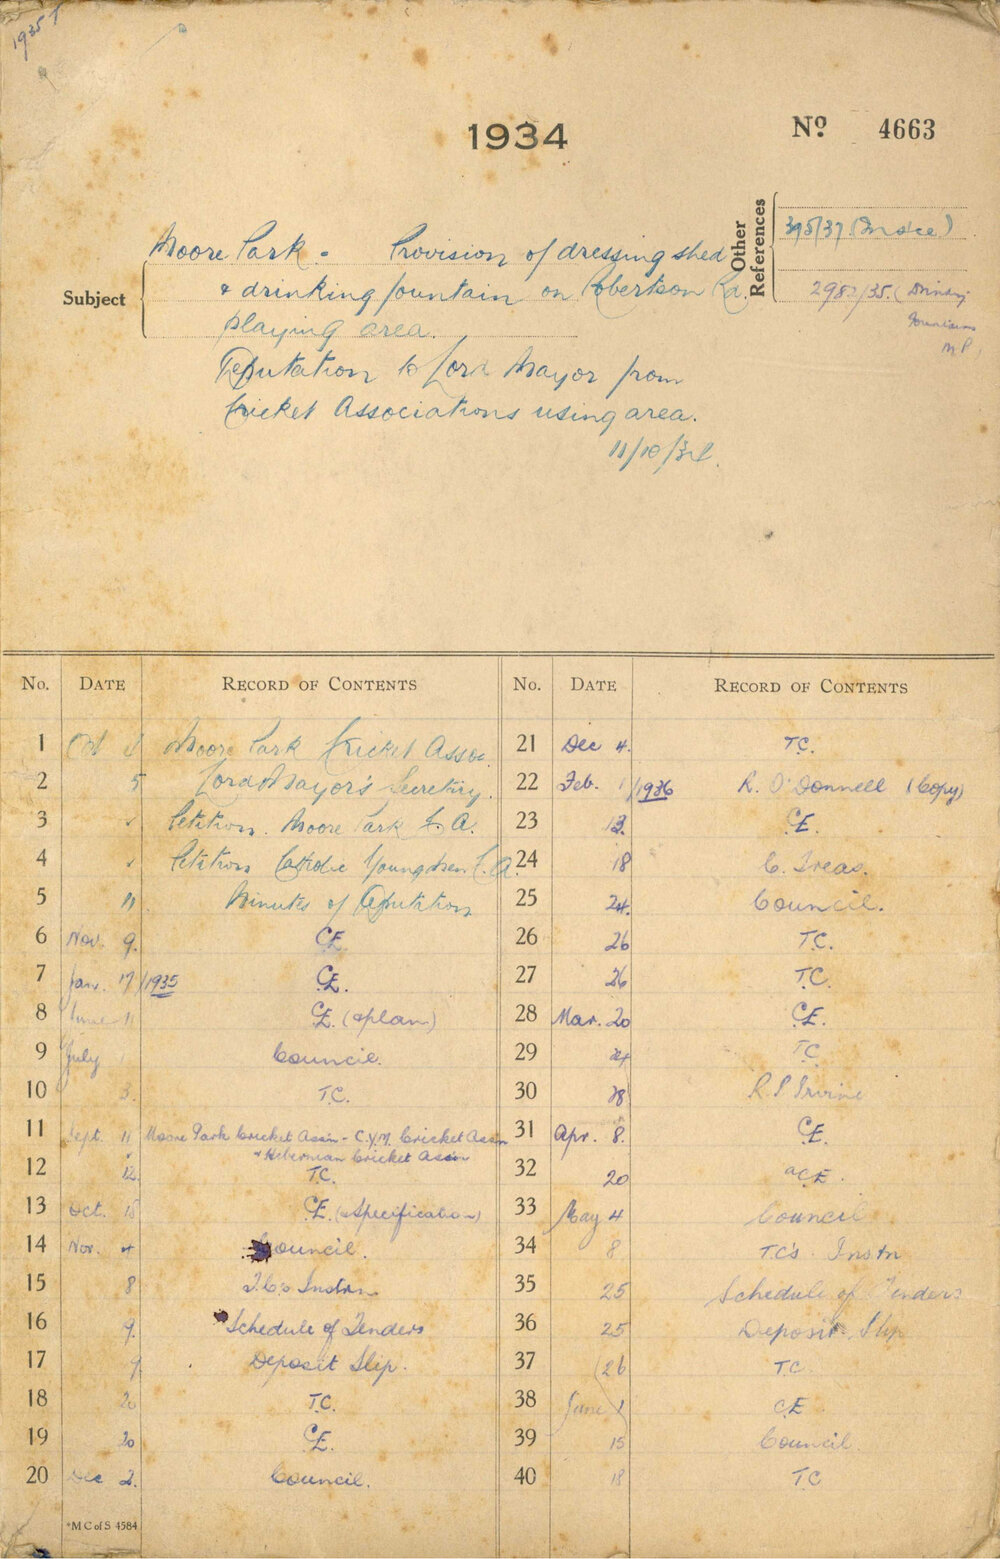 1935
1934
No 4663
Other References
395/37 (Insice)
2982/35. (Drinking
Fountains
M.P.
Subject
Moore Park - Provision of dressing shed
& drinking fountain on Robertson Rd.
playing area.
Deputation to Lord Mayor from
Cricket Associations using area.
11/10/34.
No. DATE RECORD OF CONTENTS
1 Oct Moore Park Cricket Assoc.
2 5 Lord Mayor's Secretary.
3 Petition. Moore Park C.A.
4 Petition Catholic Youngmen C.A.
5 11. Minutes of Deputation
6 Nov. 9. CE.
7 Jan. 17/1935 CE.
8 June 11 CE. (& plan)
9 July 1 Council.
10 3. T.C.
11 Sept. 11 Moore Park Cricket Ass'n - C.Y.M. Cricket Assn
& Hiberman Cricket Assn
12 12. T.C.
13 Oct. 15 CE. (& Specification)
14 Nov. 4 Council.
15 8 T.C's Instrn
16 9. Schedule of Tenders
17 9 Deposit Slip.
18 20 T.C.
19 20 CE.
20 Dec 2. Council.
*M C of S 4584
No. DATE RECORD OF CONTENTS
21 Dec 4. T.C.
22 Feb. 1/1936 R. O'Donnell (Copy)
23 13. CE.
24 18 C. Treas.
25 24. Council.
26 26 T.C.
27 26 T.C.
28 Mar. 20 CE.
29 24 T.C
30 28 R P Irvine
31 Apr. 8. CE.
32 20 aCE.
33 May 4 Council
34 8 T.C's Instn
35 25 Schedule of Tenders
36 25 Deposit Slip
37 26 T.C.
38 June 1 CE
39 15 Council
40 18 T.C